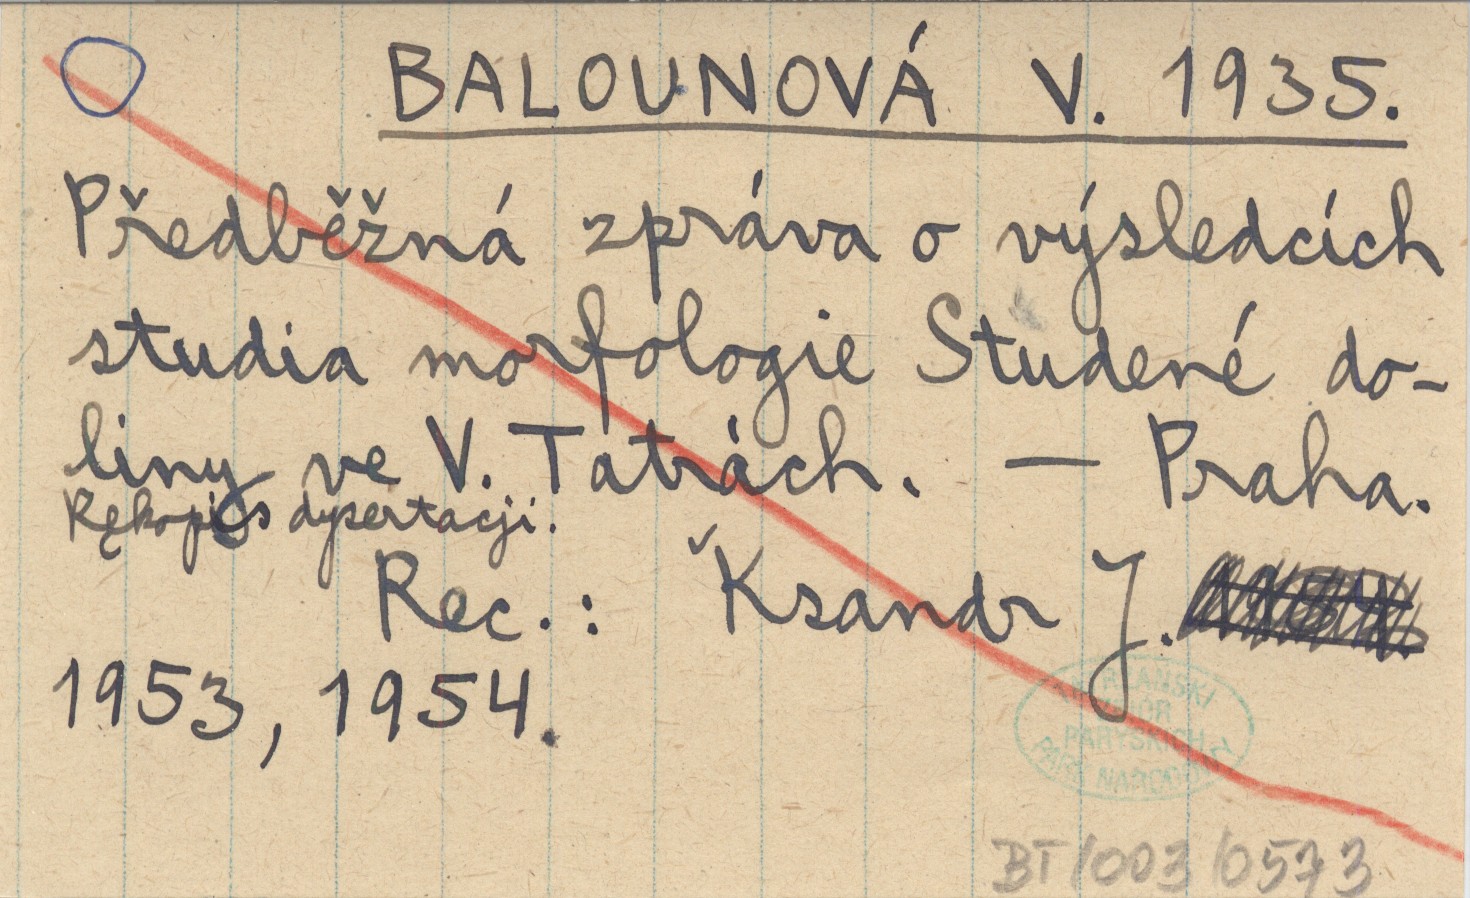 BALOUNOVÁ V. 1935.
Předběžná zpráva o výsledcích
studia morfologie Studené do-
liny ve V. Tatrách. — Praha.
Rękopis dysertacji.
Rec.: Ksandr J.
1953, 1954.
PARYSKICH
PARK NARODOWY
BT/003/0573